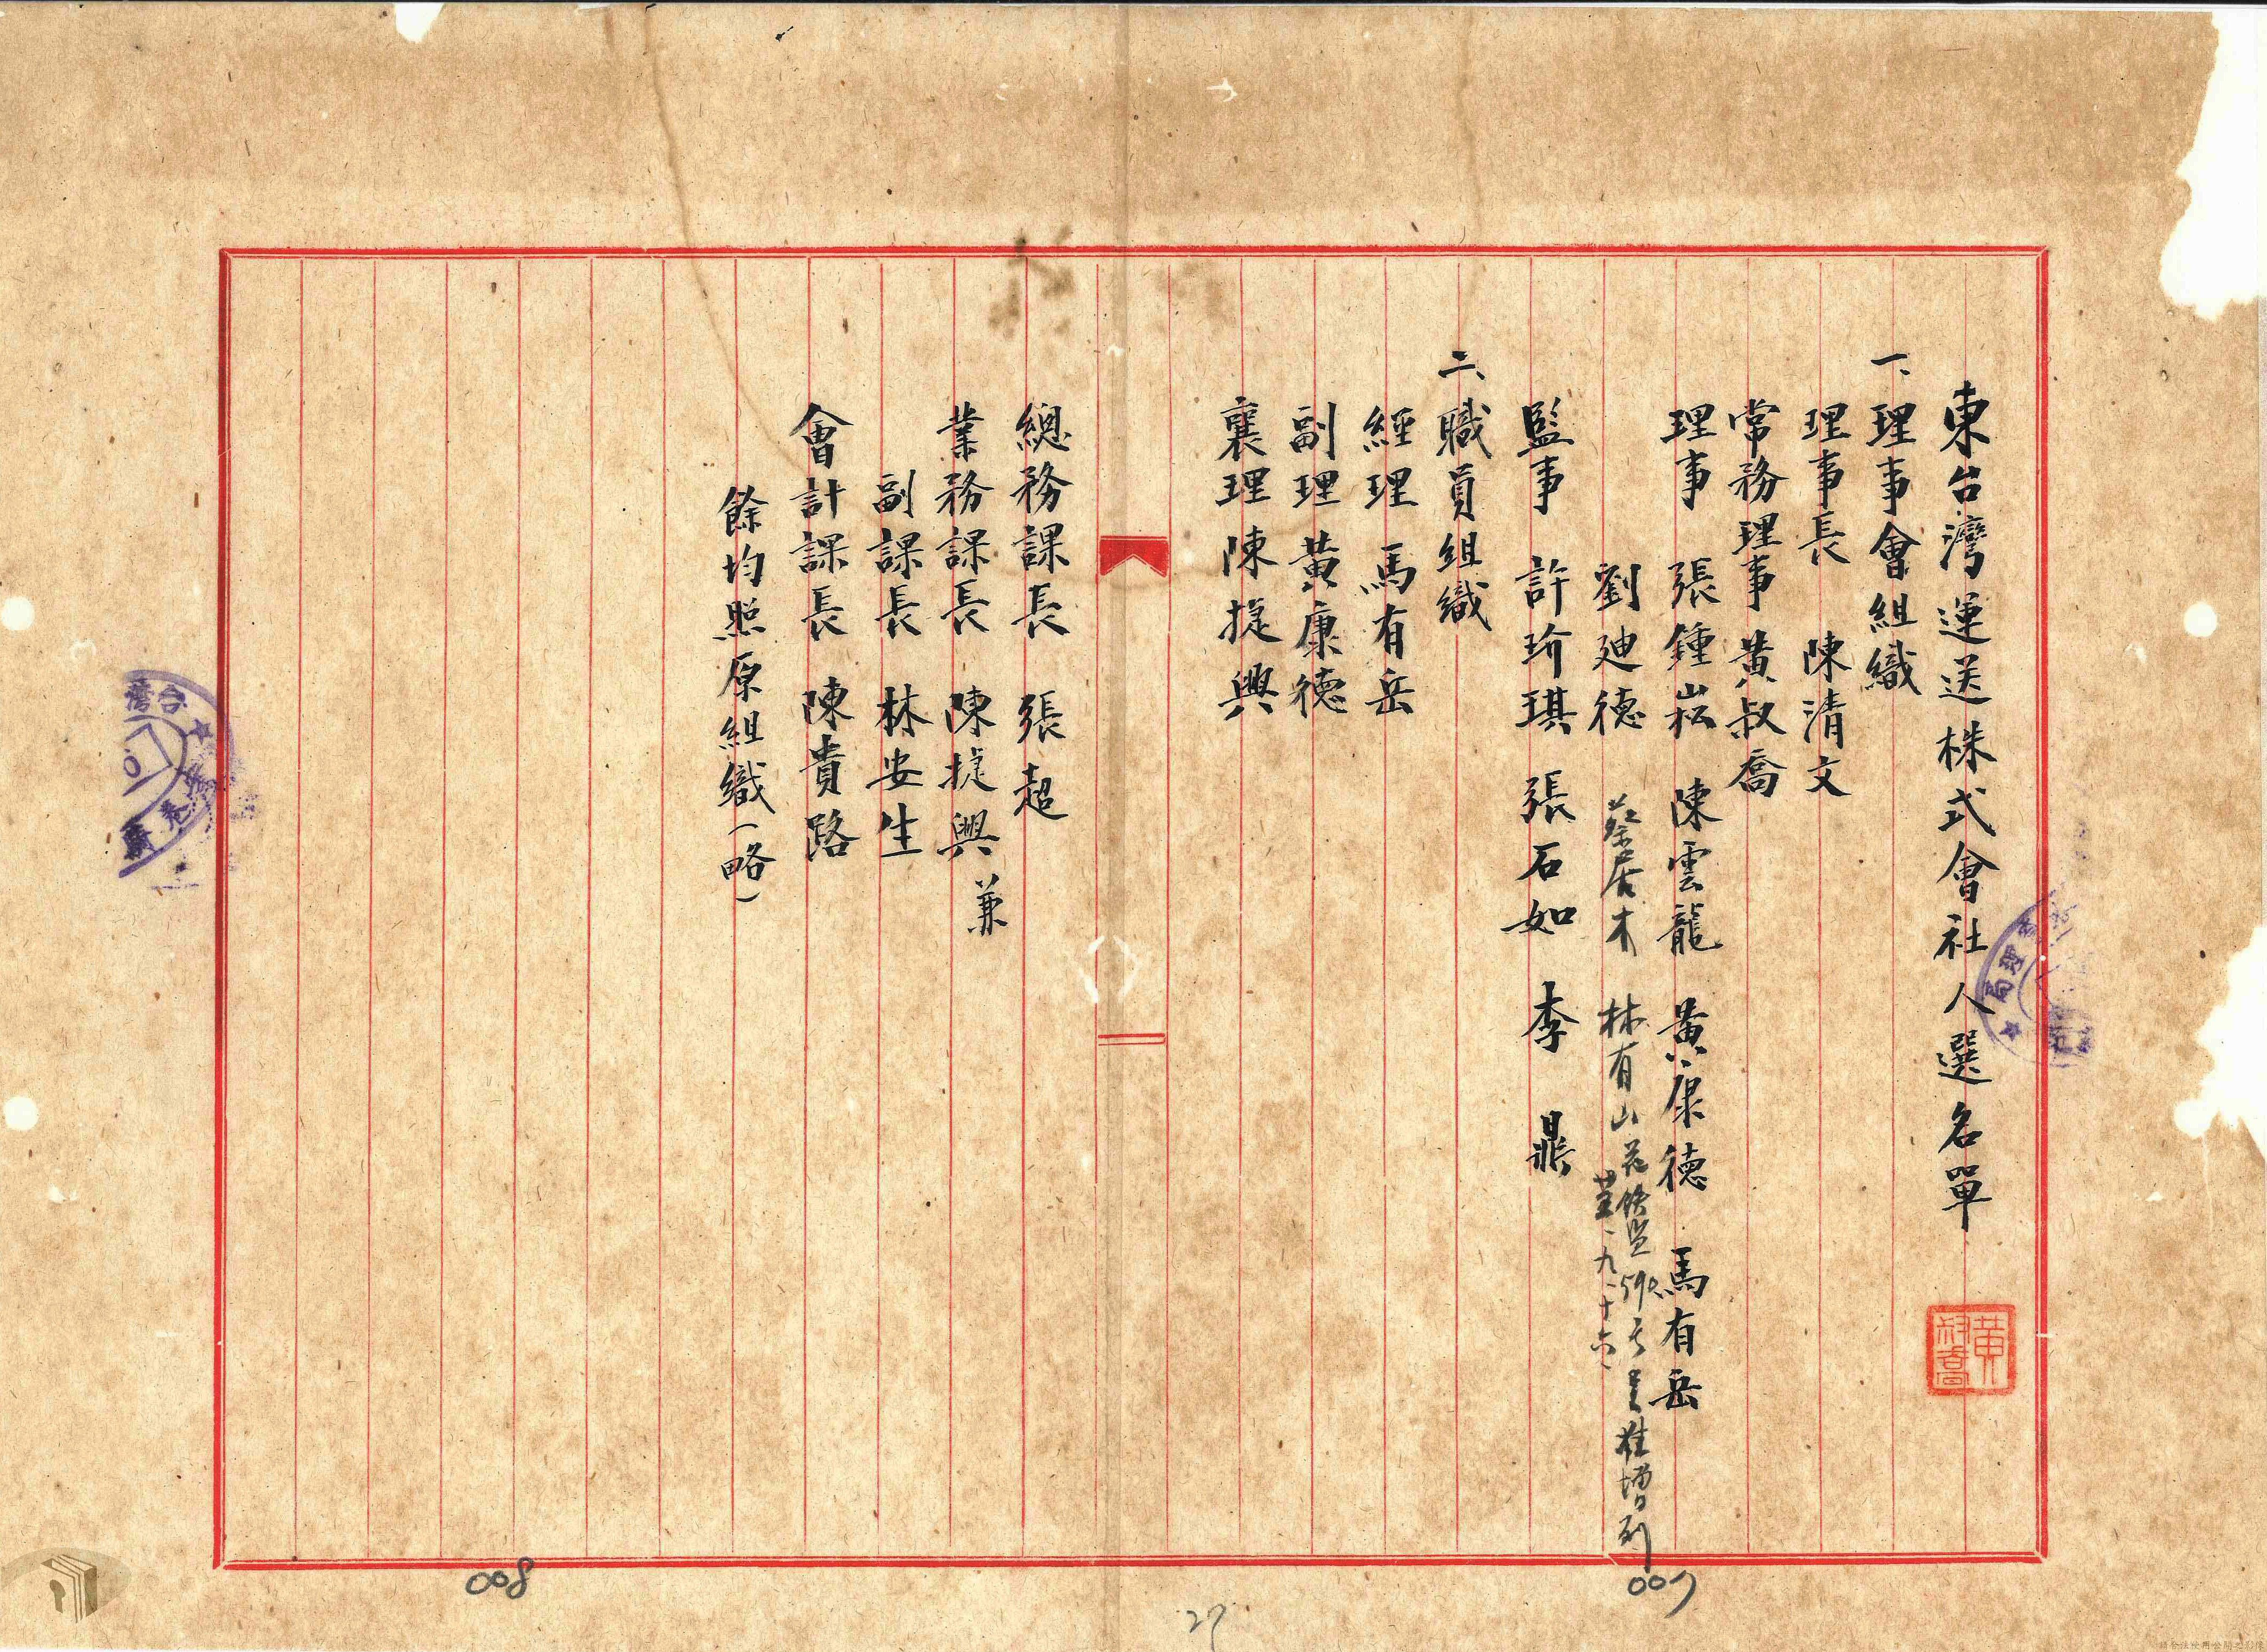 東台灣運送株式會社人選名單
一、理事會組織
理事長 陳清文
常務理事 黃叔喬
理事 張鍾崧 陳雲龍 黃康德 馬有岳
劉廸德 蔡居木 林有山
增列
九、十六
監事 許玠琪 張石如 李鼎
二、職員組織
經理 馬有岳
副理 黃康德
襄理 陳捷興
總務課長 張超
業務課長 陳捷興 兼
副課長 林安生
會計課長 陳貴路
餘均照原組織(略)
黃叔喬
007
008
27